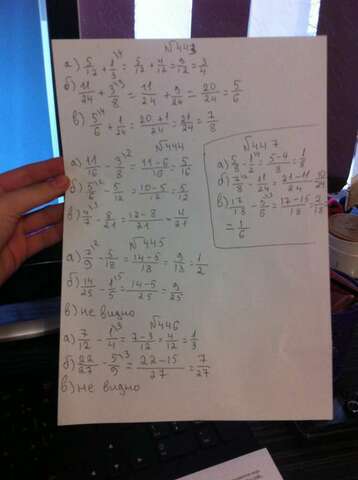 №443
а) 5/12 + 1/3^\4 = 5/12 + 4/12 = 9/12 = 3/4
б) 11/24 + 3/8^\3 = 11/24 + 9/24 = 20/24 = 5/6
в) 5/6^\4 + 1/24 = 20+1/24 = 21/24 = 7/8
№444
а) 11/16 - 3/8^\2 = 11-6/16 = 5/16
б) 5/6^\2 - 5/12 = 10-5/12 = 5/12
в) 4/7^\3 - 8/21 = 12-8/21 = 4/21
№445
а) 7/9^\2 - 5/18 = 14-5/18 = 9/18 = 1/2
б) 14/25 - 1/5^\5 = 14-5/25 = 9/25
в) не видно
№446
а) 7/12 - 1/4^\3 = 7-3/12 = 4/12 = 1/3
б) 22/27 - 5/9^\3 = 22-15/27 = 7/27
в) не видно
№447
а) 5/8 - 1/2^\4 = 5-4/8 = 1/8
б) 7/8^\3 - 11/24 = 21-11/24 =
в) 17/18 - 5/6^\3 = 17-15/18 = 2/18
= 1/6